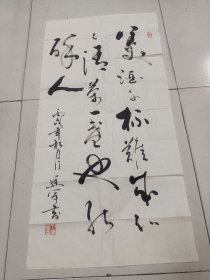 美酒千杯難成知
己清茶一盞也能
醉人
丙戌年秋月
書